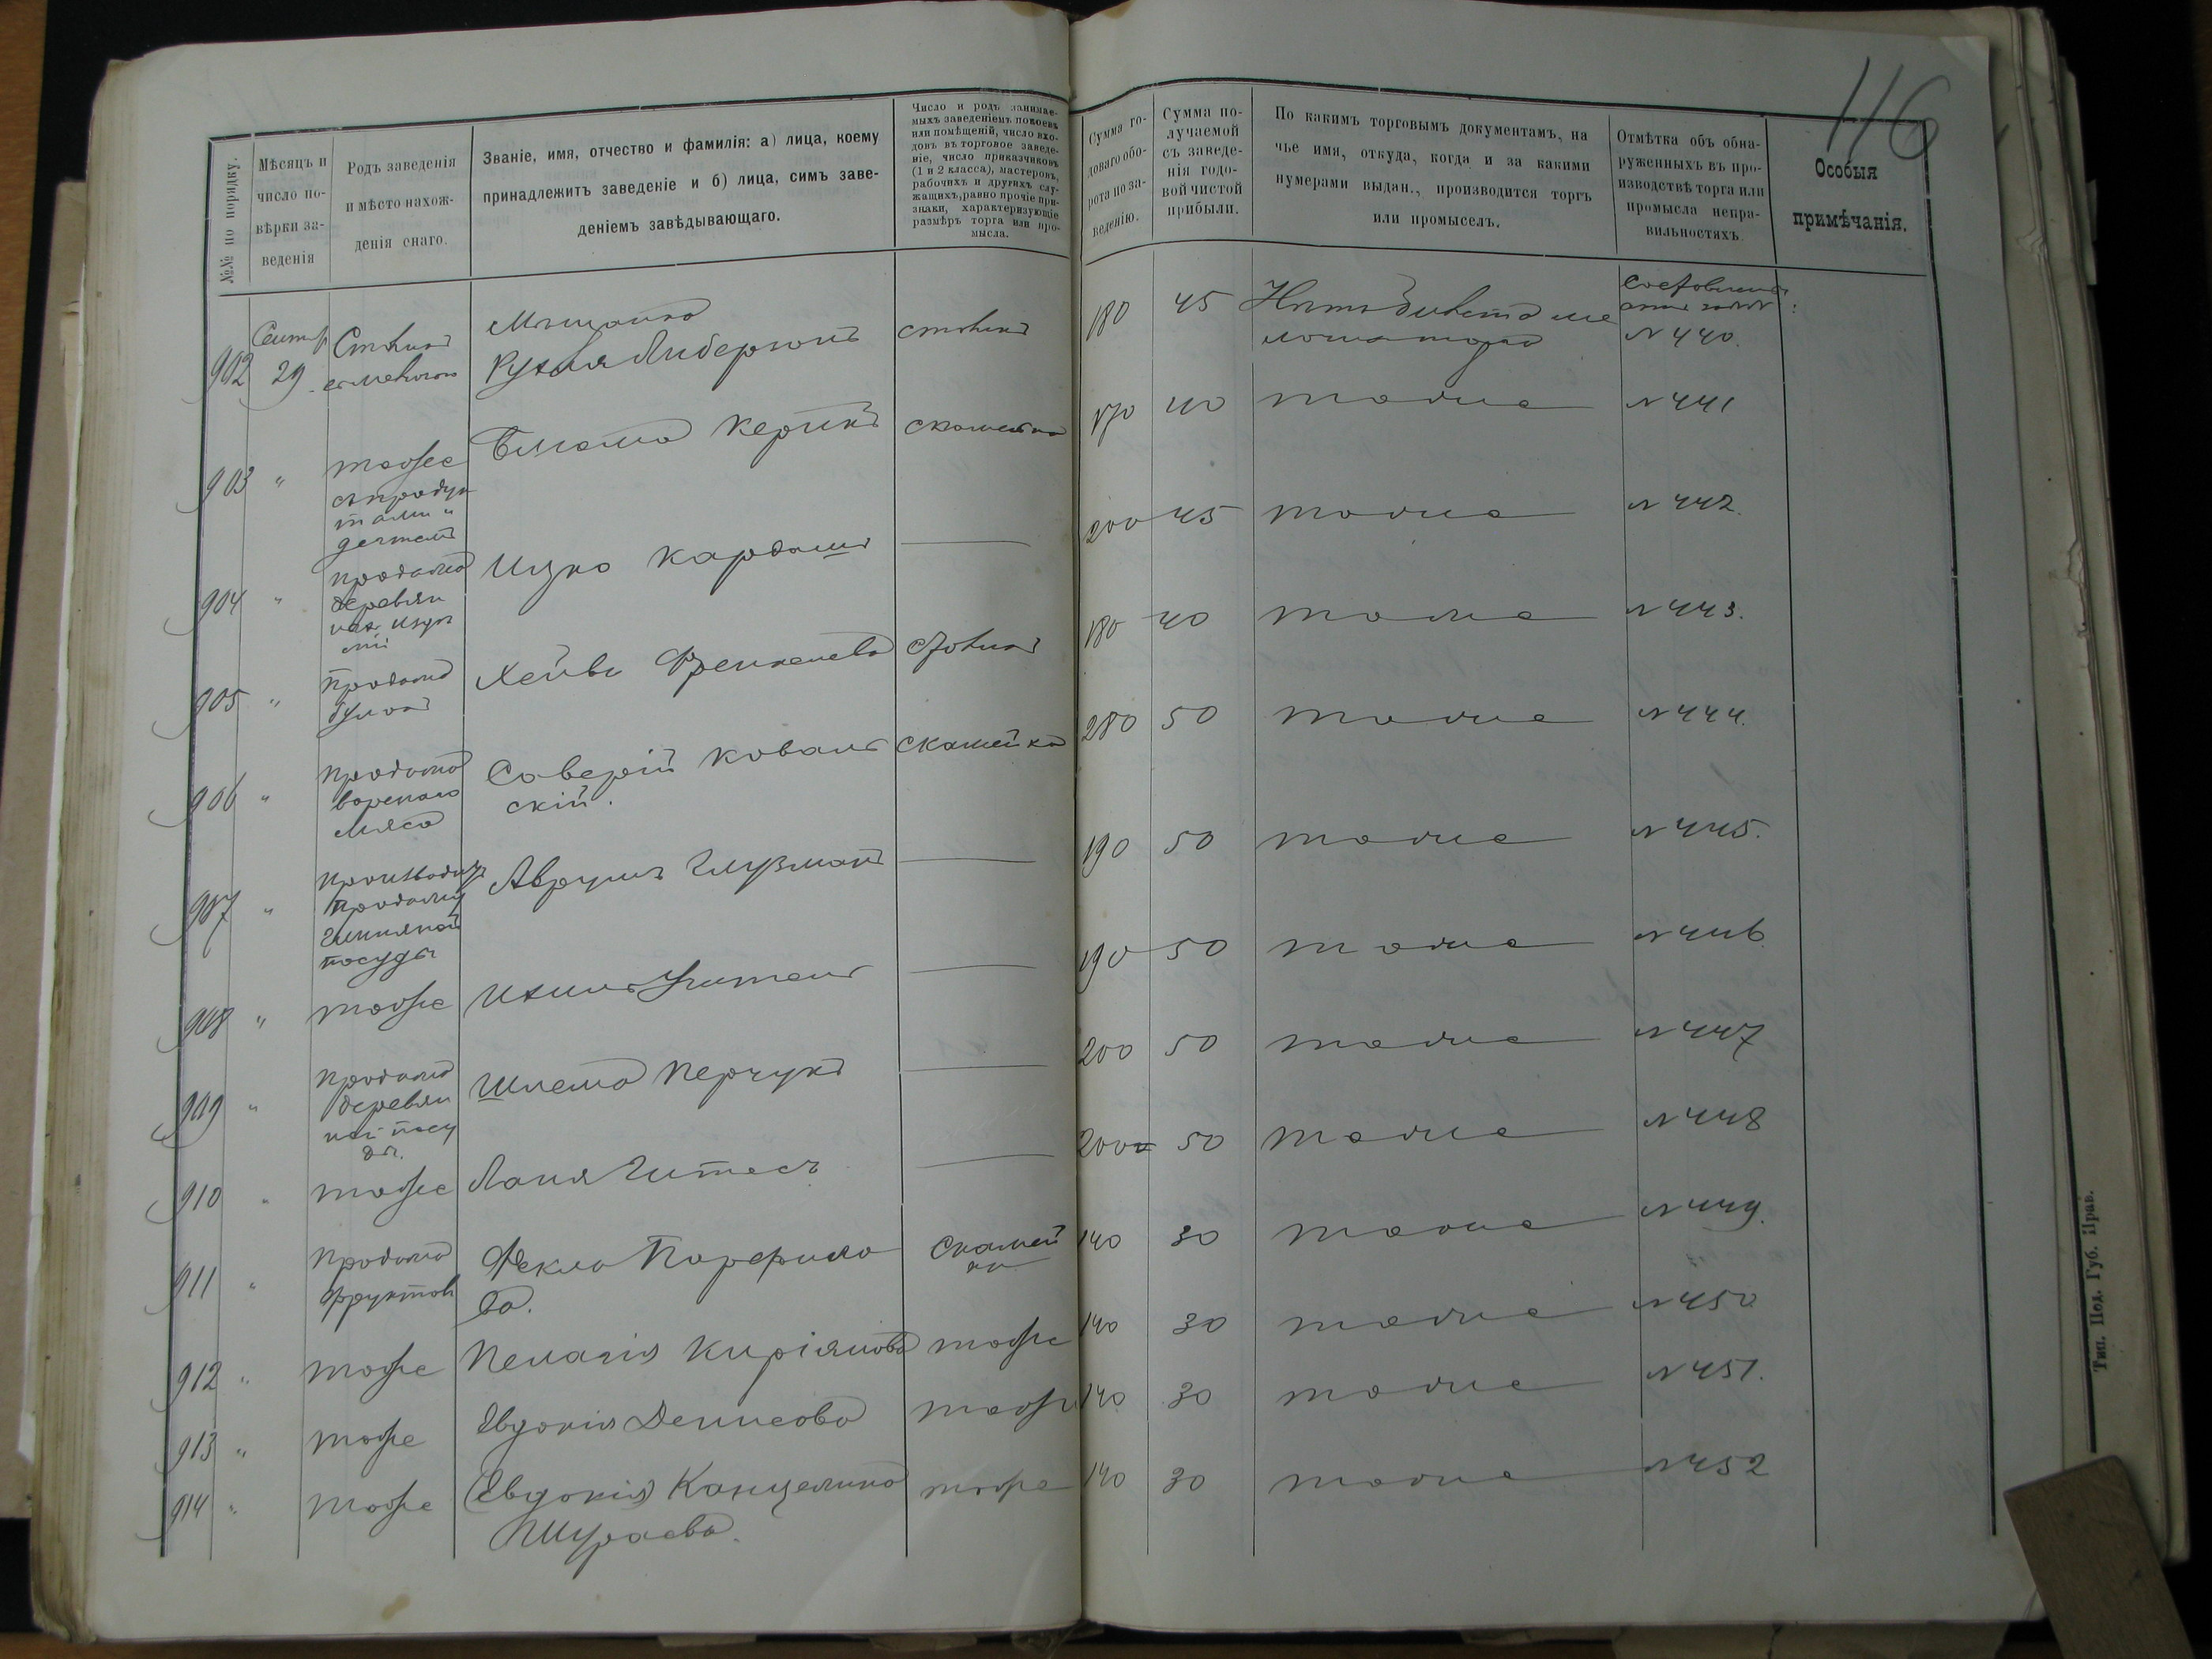 116
№№ по порядку.
Мѣсяцъ и
число по-
вѣрки за-
веденія
Родъ заведенія
и мѣсто нахож-
денія снаго.
Званіе, имя, отчество и фамилія: а) лица, коему
принадлежитъ заведеніе и б) лица, симъ заве-
деніемъ завѣдывающаго.
Число и родъ занимае-
мыхъ заведеніемъ покоевъ
или помѣщеній, число вхо-
довъ въ торговое заведе-
ніе, число приказчиковъ
(1 и 2 класса), мастеровъ,
рабочихъ и другихъ слу-
жащихъ, равно прочіе при-
знаки, характеризующіе
размѣръ торга или про-
мысла.
Сумма го-
доваго обо-
рота по за-
веденію.
Сумма по-
лучаемой
съ заведе-
нія годо-
вой чистой
прибыли.
По какимъ торговымъ документамъ, на
чье имя, откуда, когда и за какими
нумерами выдан., производится торгъ
или промыселъ.
Отмѣтка объ обна-
руженныхъ въ про-
изводствѣ торга или
промысла непра-
вильностяхъ.
Особыя
примѣчанія.
902 Сентяб 29 Столикъ
Мѣщанка
Рухля Либерзонъ столикъ 180 45
№ 440.
903 " тоже
съ продук
тами и
дегтемъ
Керикъ скамейка 170 40 тоже № 441
904 " продажа
деревян
ныхъ изде
лій
Ицко Кардашъ — 200 45 тоже № 442.
905 " Продажа
булокъ
Хейва Френкелева столикъ 180 40 тоже № 443.
906 " продажа
варенаго
мяса
Саверій Коваль
скій. скамейка 280 50 тоже № 444.
907 " производитъ
продажу
глиняной
посуды
Аврумъ Глузманъ — 190 50 тоже № 445.
908 " тоже Ихилъ Учитель — 190 50 тоже № 446
909 " продажа
деревян
ной посу
ды.
Шлема Перчукъ — 200 50 тоже № 447
910 " тоже Лапя Гитесъ — 200 50 тоже № 448
911 " продажа
фруктовъ
Фекла Парфило
ва. Скамей
ка 140 30 тоже № 449.
912 " тоже Пелагія Киріянова тоже 140 30 тоже № 450
913 " тоже Евдокія Денисова тоже 140 30 тоже № 451.
914 " тоже Евдокія Канцелина
Шураева. тоже 140 30 тоже № 452
Тип. Под. Губ. Прав.